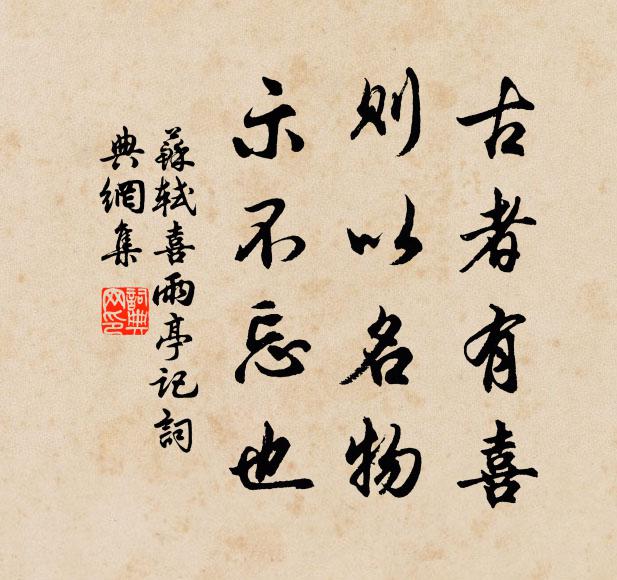 古者有喜
则以名物
示不忘也
蘇軾喜雨亭記詞
典網集
詞典網印